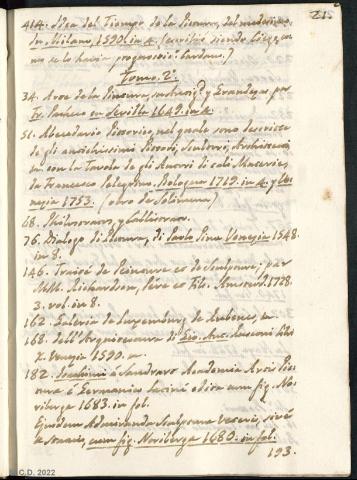 21.
414. Idea del Tiempo de la Pictura, del medesimo.
In Milano, 1590. in 4. (escribió siendo Ciego, co-
mo se lo havia pronosticado Cardano.)
Tomo. 2º
34. Arte de la Pintura, su Antigd. y Grandezas, por
Fr. Pacheco en Sevilla 1649. in 4.
51. Abecedario Pittorico, nel quale sono descritte
de gli antichissimi Pittori, Scultori, Architetti,
con la Tavola de gli Autori di tali Materie,
da Francesco Pelegrino. Bologna 1719. in 4. y Ve-
nezia 1753. (obra de Solimena)
68. Philostratus, y Callistratus.
76. Dialogo di Pictura, di Paolo Pino Venezia 1548.
in 8.
146. Traité de Peinture et de Sculpture, par
MM. Richardson, Pére et Fils. Amsterd. 1728.
3. vol. in 8.
162. Galeria de Luxemburg, de Rubens,
168. Dell'Architettura di Gio. Ant. Rusconi Libri
X. Venezia 1590.
182. Joachimi à Sandrart Academia Artis Pic-
turæ è Germanico latinè edita cum fig. No-
riberga 1683. in fol.
Ejusdem Admiranda Sculpturæ veteris, sivè
cum fig. Noriberga 1680. in fol.
193.
C.D. 2022